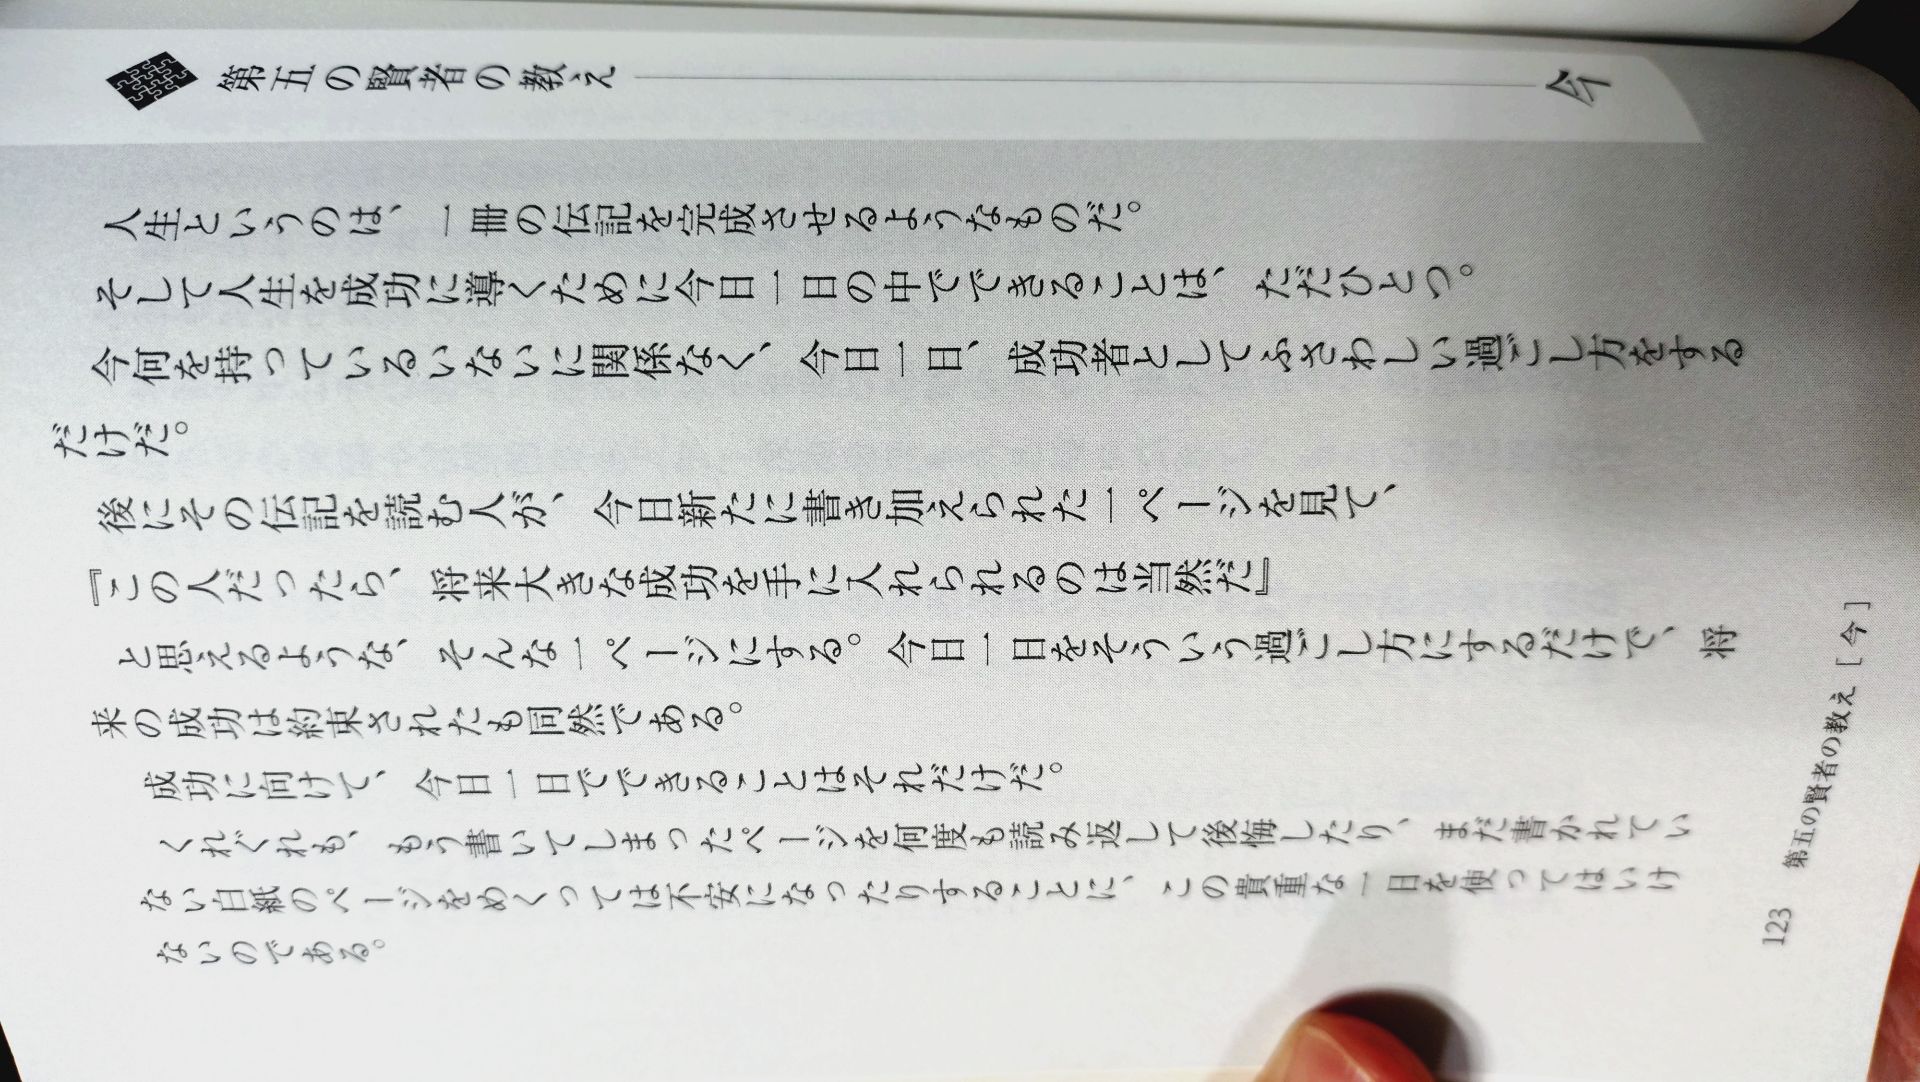 第五の賢者の教え
今
人生というのは、一冊の伝記を完成させるようなものだ。
そして人生を成功に導くために今日一日の中でできることは、ただひとつ。
今何を持っているいないに関係なく、今日一日、成功者としてふさわしい過ごし方をする
だけだ。
後にその伝記を読む人が、今日新たに書き加えられた一ページを見て、
『この人だったら、将来大きな成功を手に入れられるのは当然だ』
と思えるような、そんな一ページにする。今日一日をそういう過ごし方にするだけで、将
来の成功は約束されたも同然である。
成功に向けて、今日一日でできることはそれだけだ。
くれぐれも、もう書いてしまったページを何度も読み返して後悔したり、まだ書かれてい
ない白紙のページをめくっては不安になったりすることに、この貴重な一日を使ってはいけ
ないのである。
123
第五の賢者の教え［今］